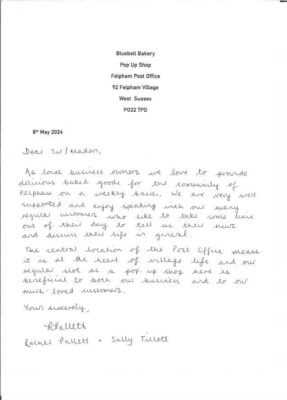 Bluebell Bakery
Pop Up Shop
Felpham Post Office
92 Felpham Village
West Sussex
PO22 7PD
8th May 2024
Dear Sir/Madam,
As local business owners we love to provide
delicious baked goods for the community of
Felpham on a weekly basis. We are very well
supported and enjoy speaking with our many
regular customers who like to take some time
out of their day to tell us their news
and discuss their life in general.
The central location of the Post Office means
it is at the heart of village life and our
regular slot as a pop-up shop here is
beneficial to both our business and to our
much-loved customers.
Yours sincerely,
RPallett
Rachel Pallett + Sally Tillott